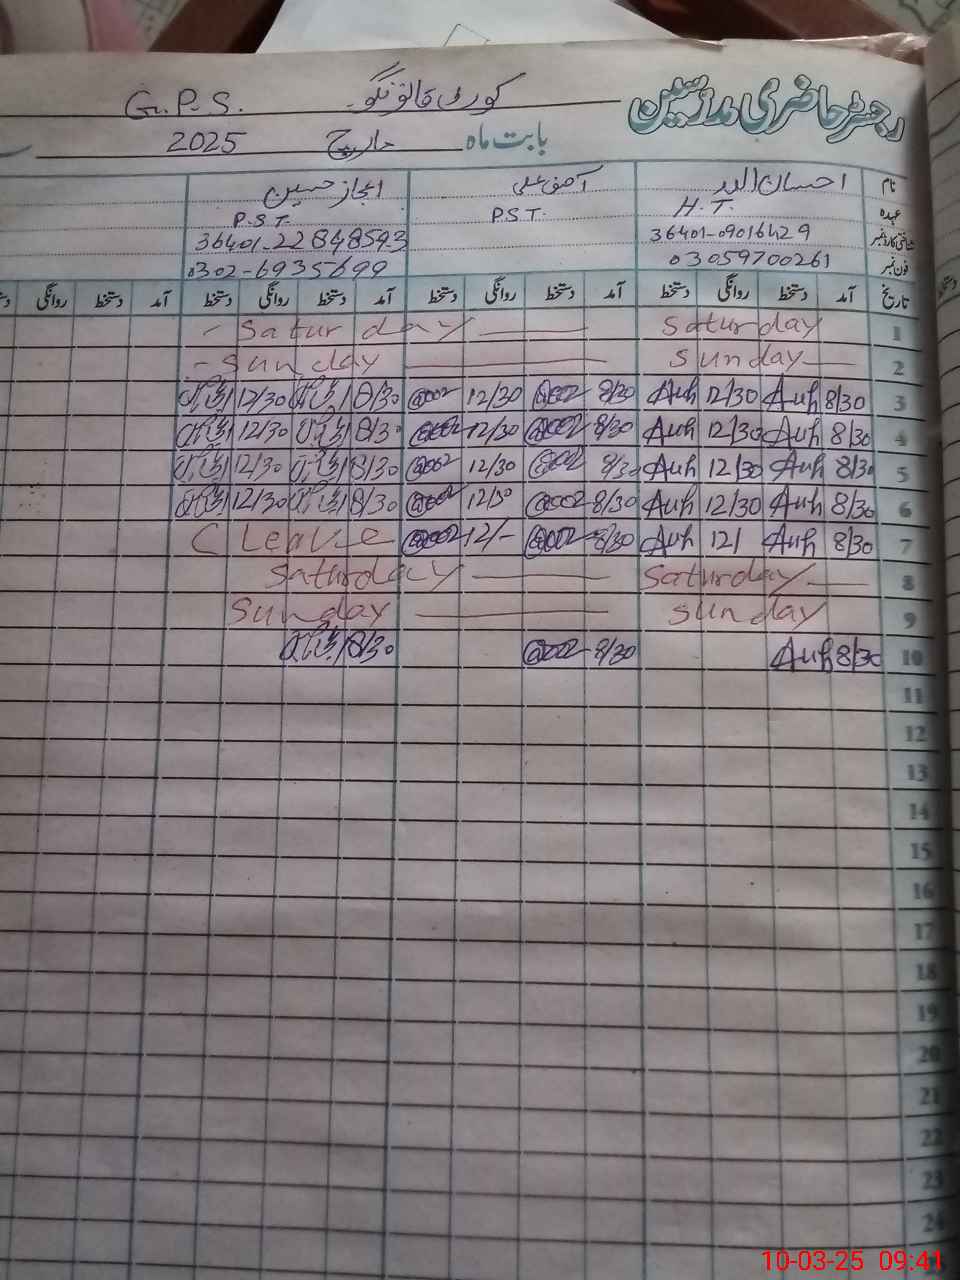 رجسٹر حاضری مدرسین G.P.S. کوری قانونگو
بابت ماہ مارچ 2025
نام احسان اللہ آصف علی اعجاز حسین
عہدہ H.T. P.S.T. P.S.T.
شناختی کارڈ نمبر 36401-09016429 36401-22848593
فون نمبر 03059700261 0302-6935699
تاریخ آمد دستخط روانگی دستخط آمد دستخط روانگی دستخط آمد دستخط روانگی دستخط آمد دستخط روانگی
1 Saturday Saturday
2 Sunday Sunday
3 8/30 Auh 12/30 Auh 8/30 12/30 8/30 12/30
4 8/30 Auh 12/30 Auh 8/30 12/30 8/30 12/30
5 8/30 Auh 12/30 Auh 8/30 12/30 8/30 12/30
6 8/30 Auh 12/30 Auh 8/30 12/30 8/30 12/30
7 8/30 Auh 12/ Auh 8/30 12/- C Leave
8 Saturday Saturday
9 Sunday Sunday
10 8/30 Auh 8/30 8/30
11
12
13
14
15
16
17
18
19
20
21
22
23
24
10-03-25 09:41